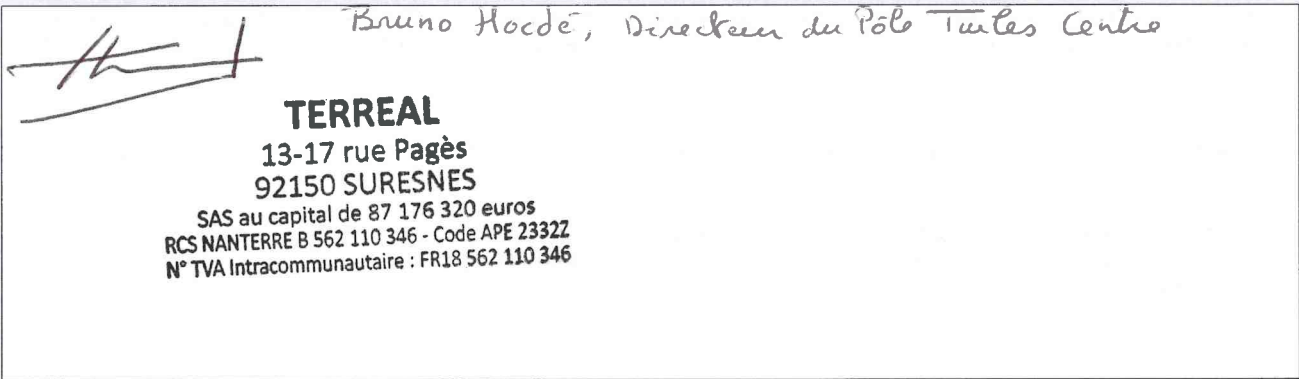 Bruno Hocdé, Directeur du Pôle Tuiles Centre
TERREAL
13-17 rue Pagès
92150 SURESNES
SAS au capital de 87 176 320 euros
RCS NANTERRE B 562 110 346 - Code APE 2332Z
N° TVA Intracommunautaire : FR18 562 110 346